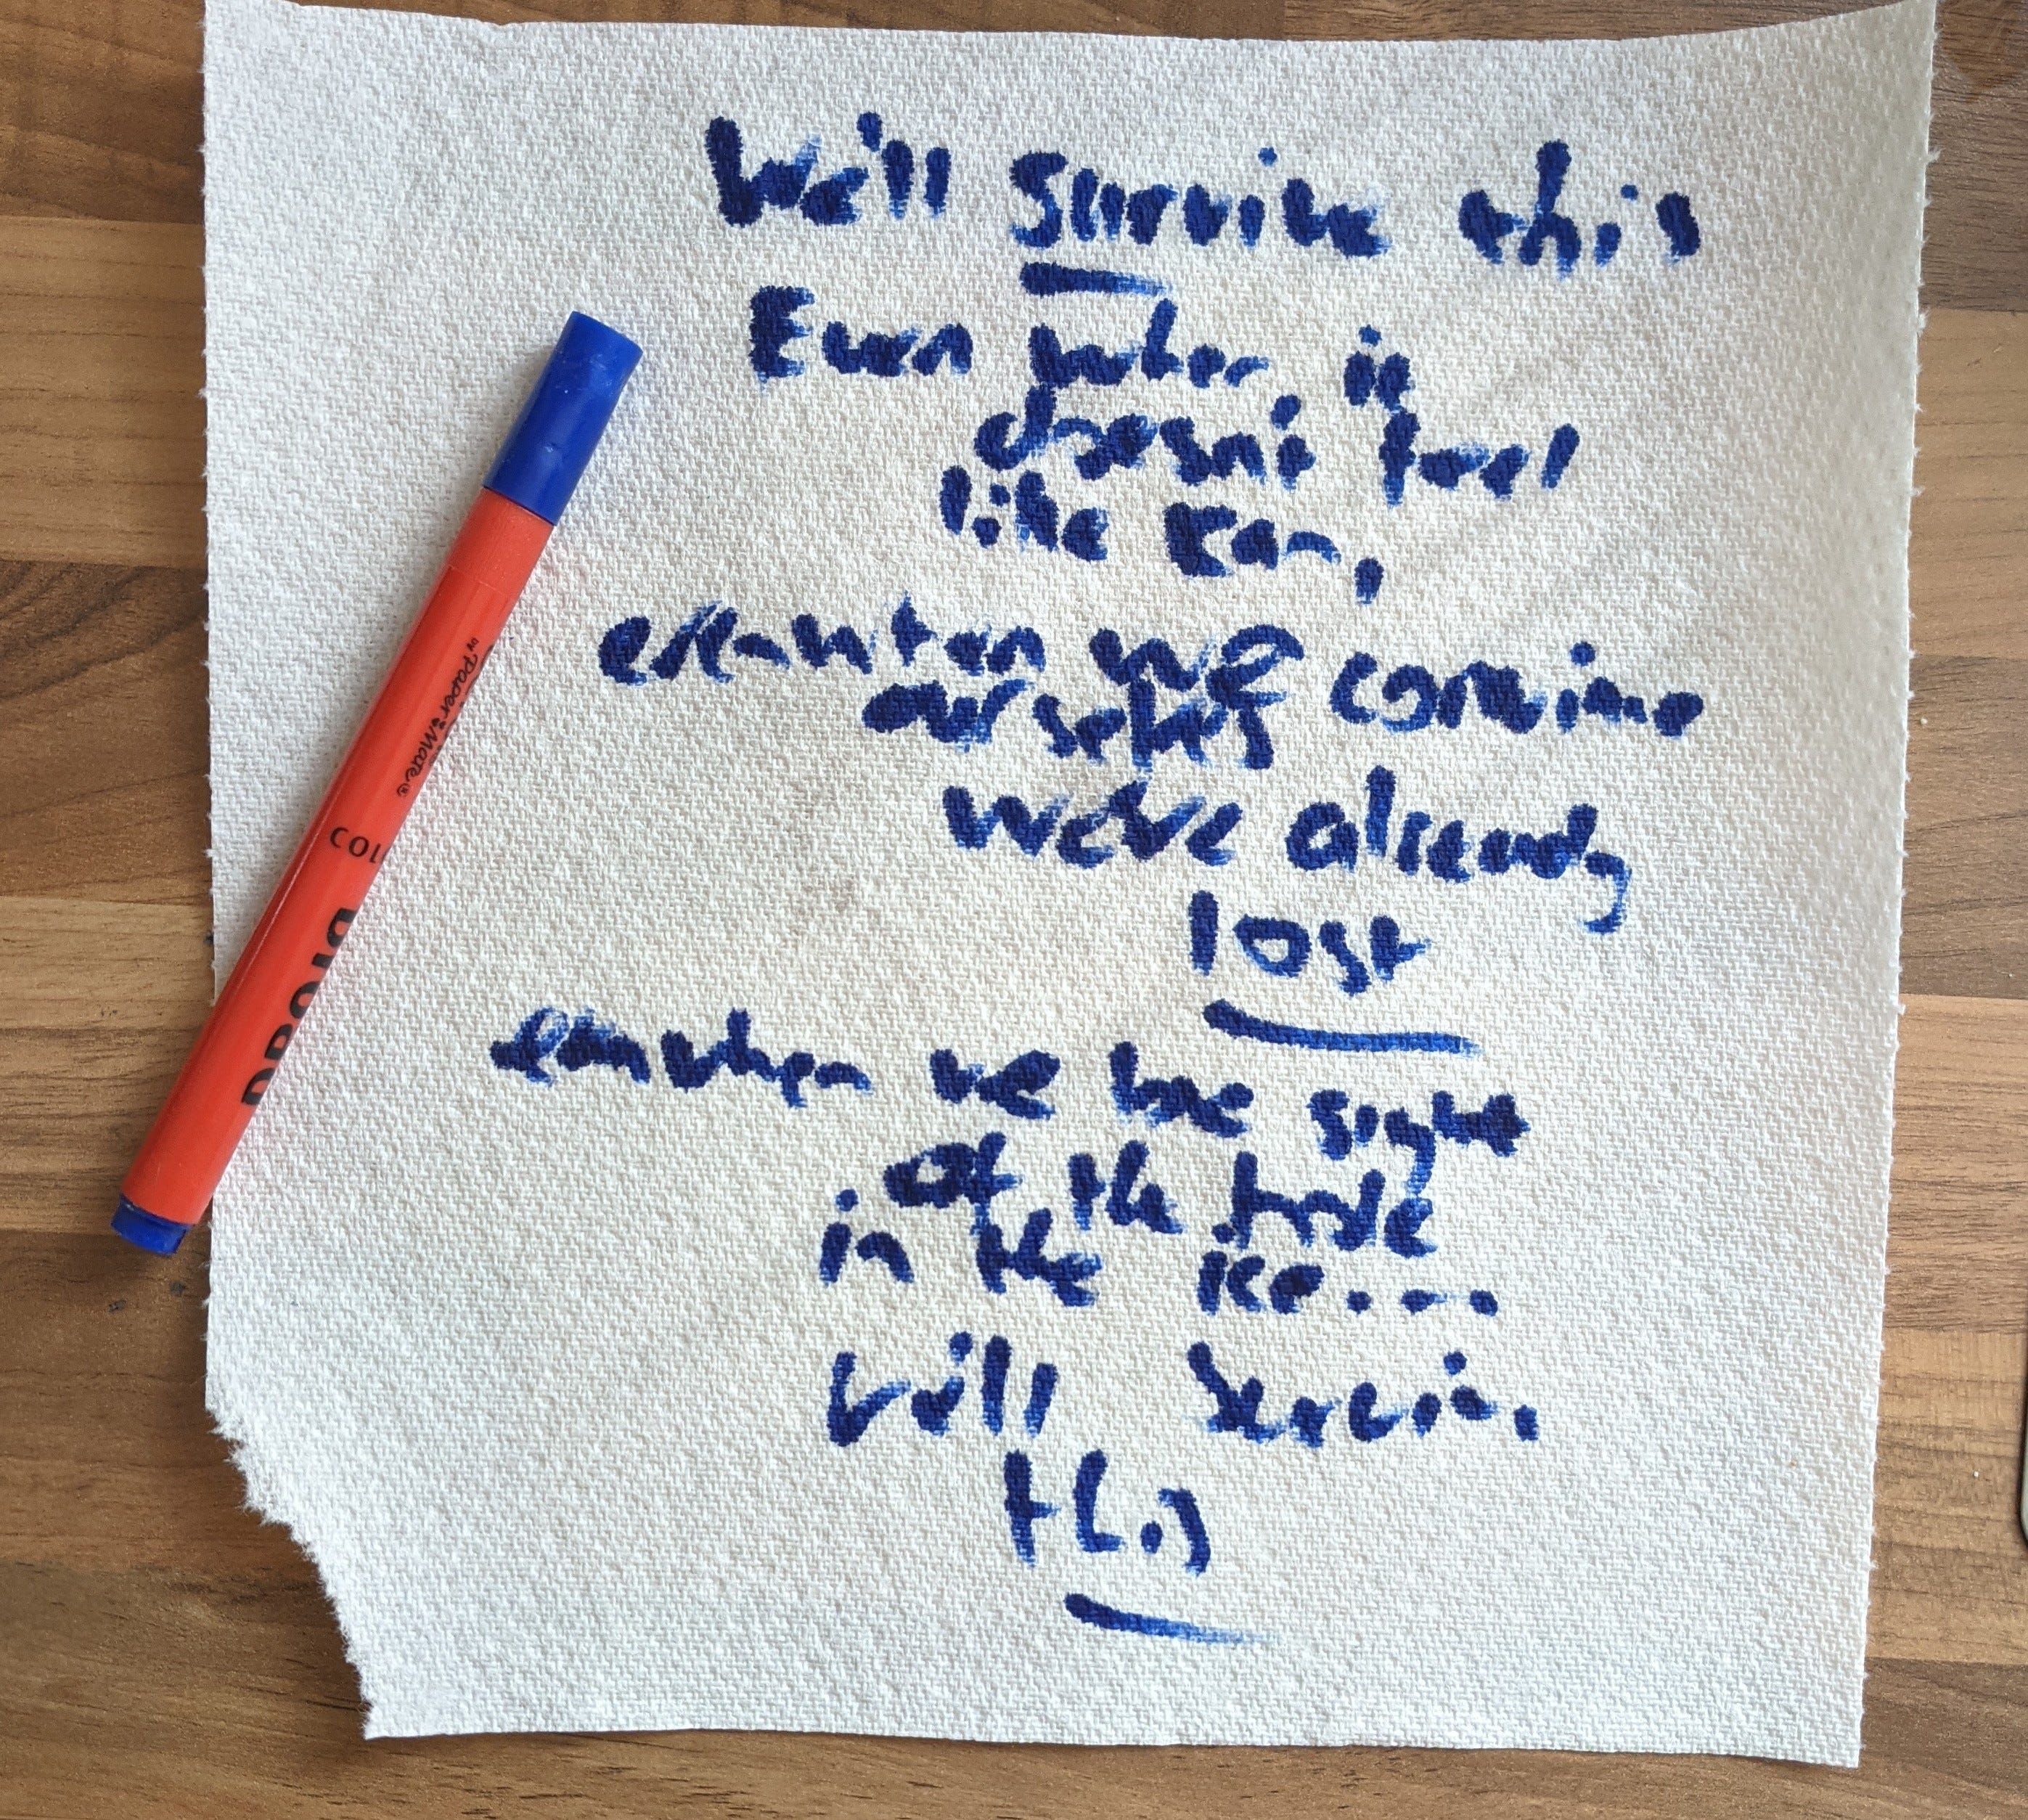 We'll survive this
Even when it
doesn't feel
like
even when we convince
ourselves
we've already
lost
even when we lose sight
of the hole
in the ice....
We'll survive
this
Paper Mate®
COL
broad